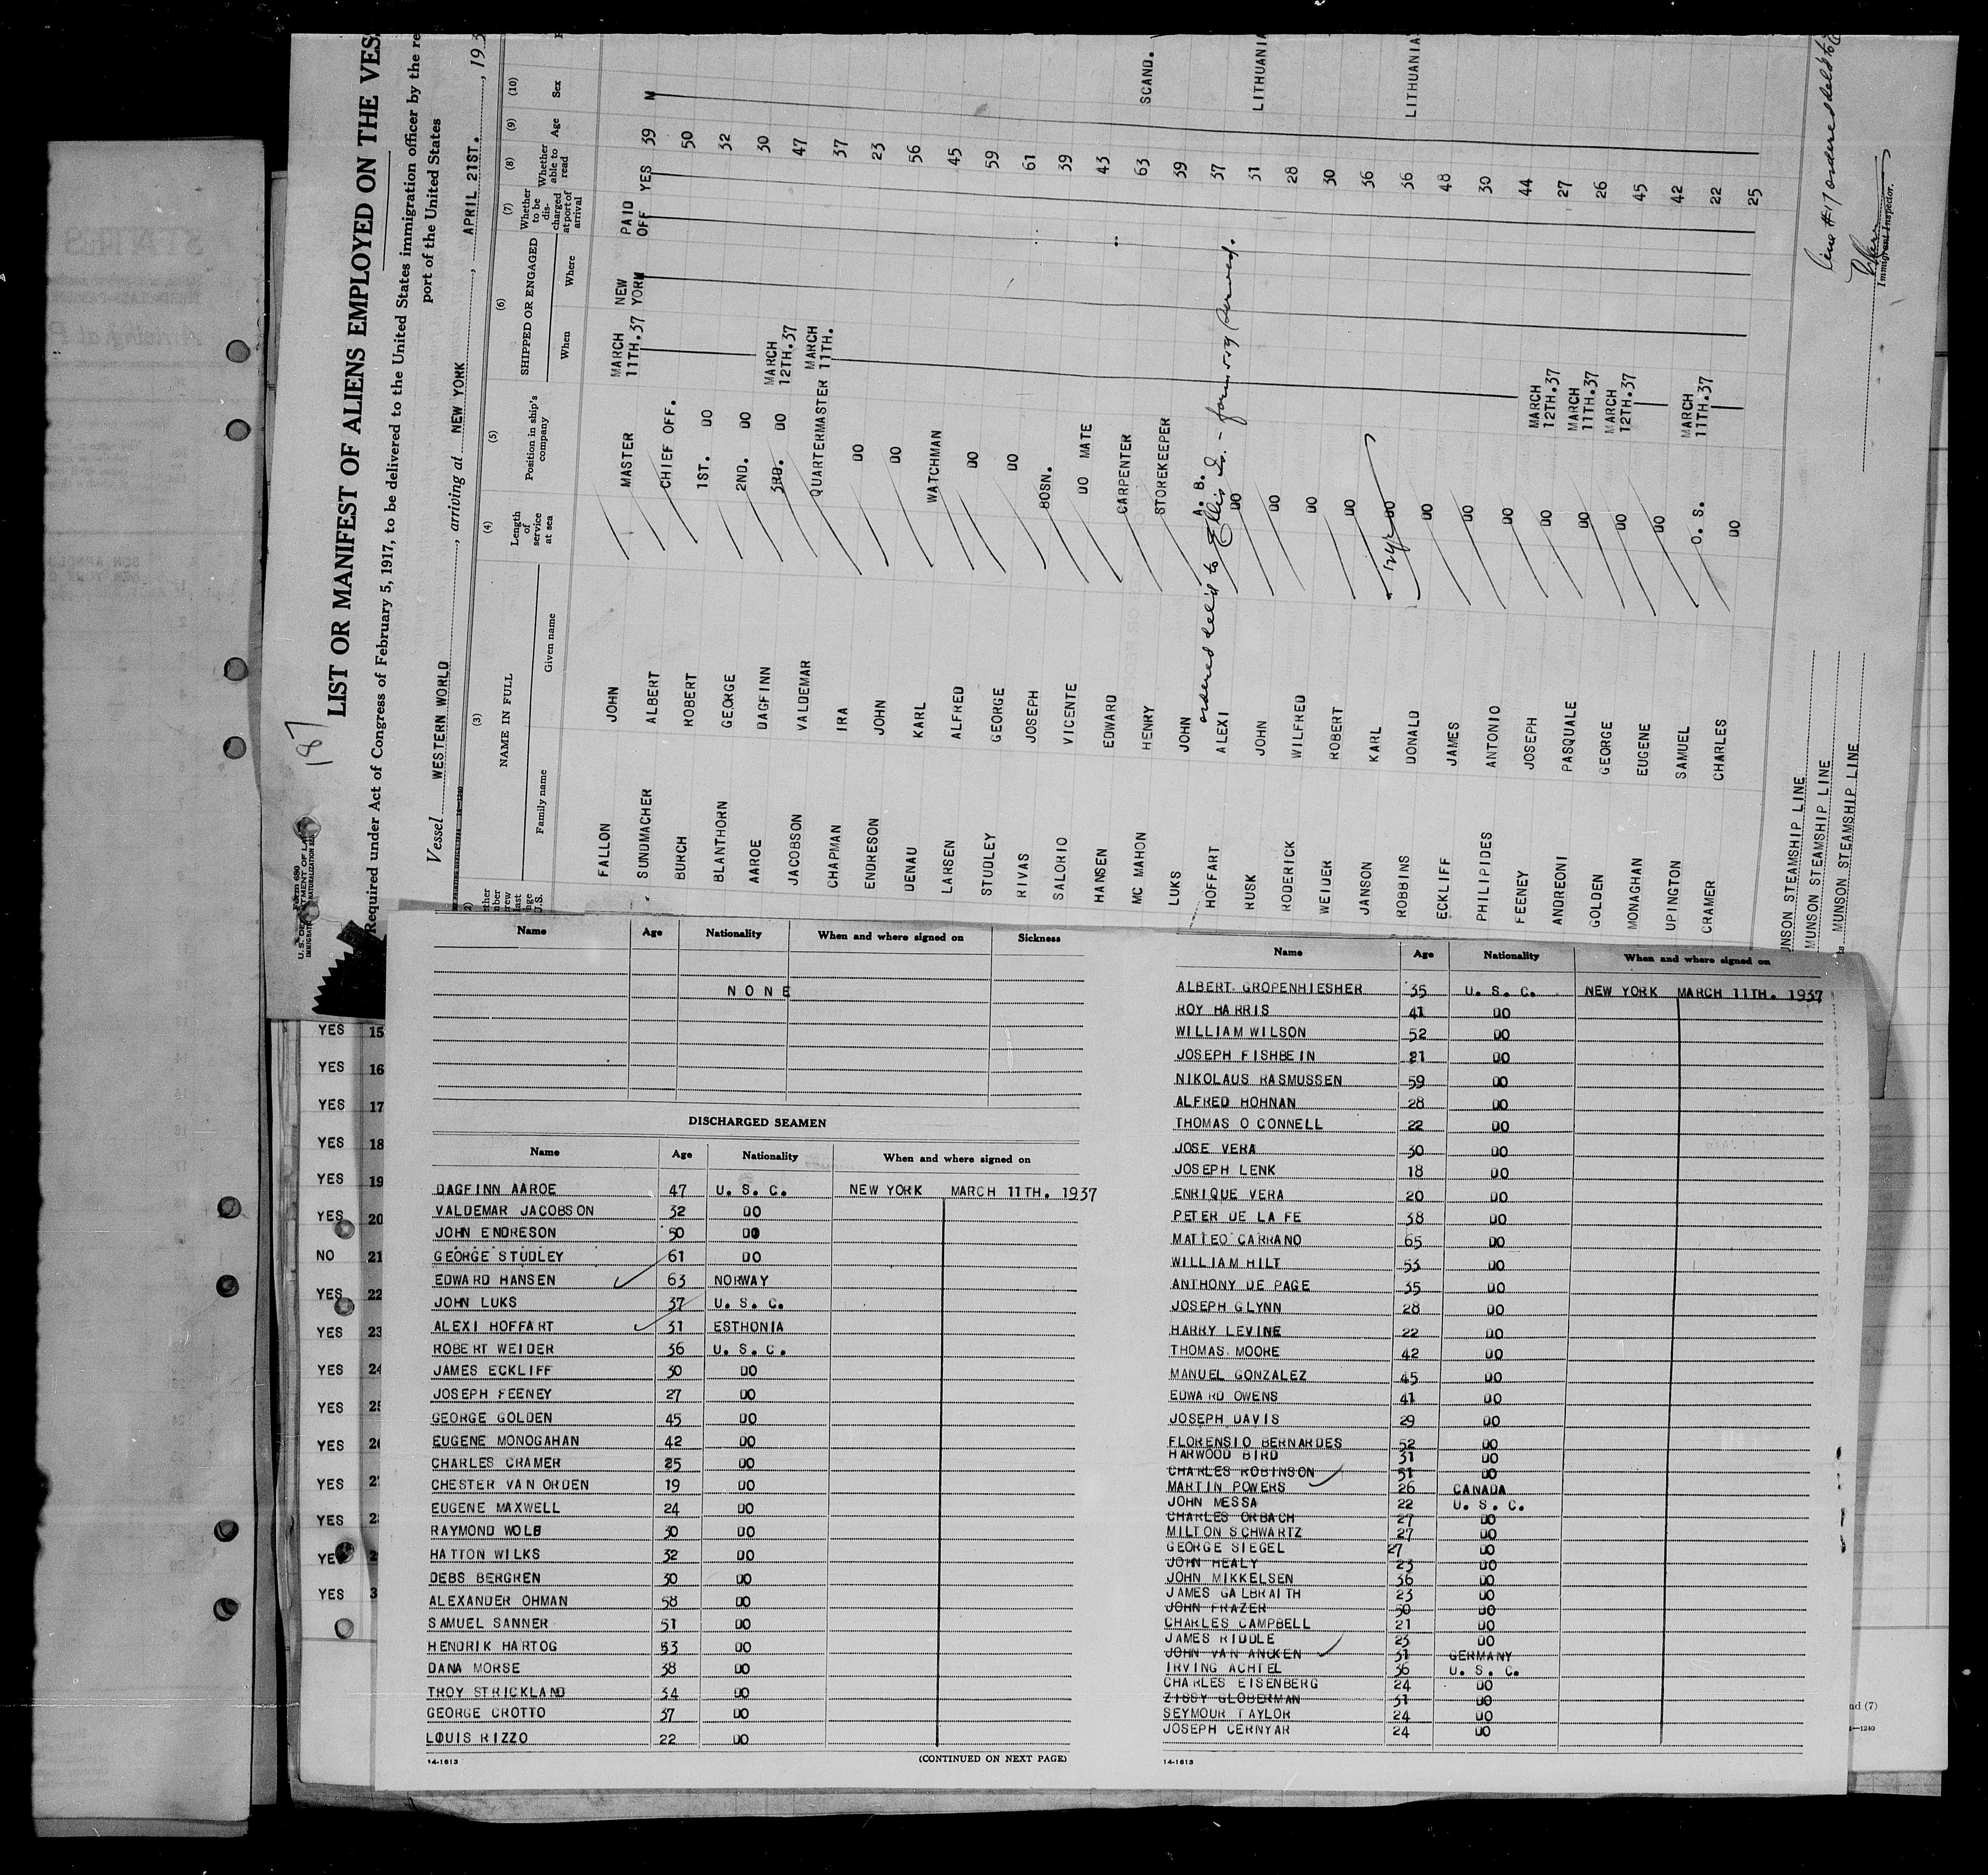 187
LIST OR MANIFEST OF ALIENS EMPLOYED ON THE VES
Required under Act of Congress of February 5, 1917, to be delivered to the United States immigration officer by the re
port of the United States
Vessel WESTERN WORLD, arriving at NEW YORK, APRIL 21ST., 193
Form 680
(3) (4) (5) (6) (7) (8) (9) (10)
NAME IN FULL
Family name Given name
Length of service at sea
Position in ship's company
SHIPPED OR ENGAGED
When Where
Whether to be discharged at port of arrival
Whether able to read
Age
Sex
FALLON JOHN MASTER MARCH 11TH.37 NEW YORK PAID OFF YES 39 M
SUNDMACHER ALBERT CHIEF OFF. 50
BURCH ROBERT 1ST. DO 32
BLANTHORN GEORGE 2ND. DO 30
AAROE DAGFINN 3RD. DO MARCH 12TH.37 47
JACOBSON VALDEMAR QUARTERMASTER MARCH 11TH. 37
CHAPMAN IRA DO 23
ENDRESON JOHN DO 56
DENAU KARL WATCHMAN 45
LARSEN ALFRED DO 59
STUDLEY GEORGE DO 61
RIVAS JOSEPH BOSN. 39
SALORIO VICENTE DO MATE 43
HANSEN EDWARD CARPENTER 63 SCAND.
MC MAHON HENRY STOREKEEPER 39
LUKS JOHN A. B. 37
ordered del'd to Ellis Is. - form 559 served.
HOFFART ALEXI DO 31 LITHUANIA
RUSK JOHN DO 28
RODERICK WILFRED DO 30
WEIDER ROBERT DO 36
JANSON KARL 12 yr DO 36 LITHUANIA
ROBBINS DONALD DO 48
ECKLIFF JAMES DO 30
PHILIPIDES ANTONIO DO 44
FEENEY JOSEPH DO MARCH 12TH.37 27
ANDREONI PASQUALE DO MARCH 11TH.37 26
GOLDEN GEORGE DO MARCH 12TH.37 45
MONAGHAN EUGENE DO 42
UPINGTON SAMUEL O. S. MARCH 11TH.37 22
CRAMER CHARLES DO 25
NSON STEAMSHIP LINE
MUNSON STEAMSHIP LINE
MUNSON STEAMSHIP LINE
line #17 ordered del'd to
Immigrant Inspector.
YES 15
YES 16
YES 17
YES 18
YES 19
YES 20
NO 21
YES 22
YES 23
YES 24
YES
YES
YES
YES
YES
Name Age Nationality When and where signed on Sickness
NONE
DISCHARGED SEAMEN
Name Age Nationality When and where signed on
DAGFINN AAROE 47 U. S. C. NEW YORK MARCH 11TH. 1937
VALDEMAR JACOBSON 32 DO
JOHN ENDRESON 50 DO
GEORGE STUDLEY 61 DO
EDWARD HANSEN 63 NORWAY
JOHN LUKS 37 U. S. C.
ALEXI HOFFART 31 ESTHONIA
ROBERT WEIDER 36 U. S. C.
JAMES ECKLIFF 30 DO
JOSEPH FEENEY 27 DO
GEORGE GOLDEN 45 DO
EUGENE MONOGAHAN 42 DO
CHARLES CRAMER 25 DO
CHESTER VAN ORDEN 19 DO
EUGENE MAXWELL 24 DO
RAYMOND WOLB 30 DO
HATTON WILKS 32 DO
DEBS BERGREN 30 DO
ALEXANDER OHMAN 58 DO
SAMUEL SANNER 51 DO
HENDRIK HARTOG 53 DO
DANA MORSE 38 DO
TROY STRICKLAND 34 DO
GEORGE CROTTO 37 DO
LOUIS RIZZO 22 DO
14-1613 (CONTINUED ON NEXT PAGE)
Name Age Nationality When and where signed on
ALBERT GROPENHIESHER 35 U. S. C. NEW YORK MARCH 11TH. 1937
ROY HARRIS 41 DO
WILLIAM WILSON 52 DO
JOSEPH FISHBEIN 21 DO
NIKOLAUS RASMUSSEN 59 DO
ALFRED HOHNAN 28 DO
THOMAS O CONNELL 22 DO
JOSE VERA 30 DO
JOSEPH LENK 18 DO
ENRIQUE VERA 20 DO
PETER DE LA FE 38 DO
MATTEO CARRANO 65 DO
WILLIAM HILT 53 DO
ANTHONY DE PAGE 35 DO
JOSEPH GLYNN 28 DO
HARRY LEVINE 22 DO
THOMAS MOORE 42 DO
MANUEL GONZALEZ 45 DO
EDWARD OWENS 41 DO
JOSEPH DAVIS 29 DO
FLORENSIO BERNARDES 52 DO
HARWOOD BIRD 31 DO
CHARLES ROBINSON 51 DO
MARTIN POWERS 26 CANADA
JOHN MESSA 22 U. S. C.
CHARLES ORBACH 27 DO
MILTON SCHWARTZ 27 DO
GEORGE SIEGEL 27 DO
JOHN HEALY 23 DO
JOHN MIKKELSEN 36 DO
JAMES GALBRAITH 23 DO
JOHN FRAZER 50 DO
CHARLES CAMPBELL 21 DO
JAMES RIDDLE 23 DO
JOHN VAN ANCKEN 31 GERMANY
IRVING ACHTEL 36 U. S. C.
CHARLES EISENBERG 24 DO
ZISSY GLOBERMAN 31 DO
SEYMOUR TAYLOR 24 DO
JOSEPH CERNYAR 24 DO
14-1613
nd (7)
4—1240